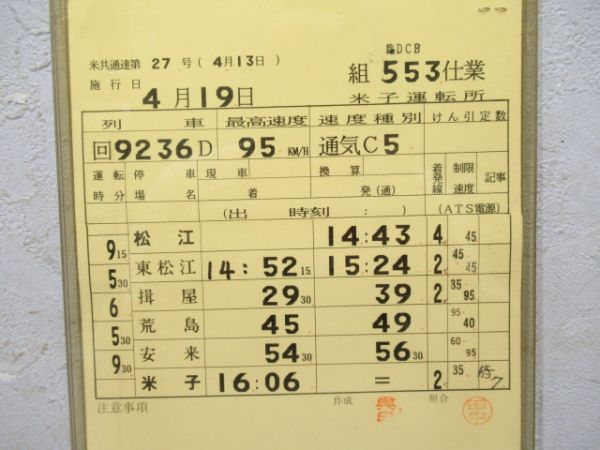 臨DCB
米共通達第 27 号(4月13日)
組 553仕業
施行日
4月19日
米子運転所
列車 最高速度 速度種別 けん引定数
回9236D 95 KM/H 通気C5
運転時分 停車場名 現車 換算 着発線 制限速度 記事
着 発(通)
(出 時刻 : ) (ATS電源)
松江 14:43 4 45
9 15
東松江 14:52 15 15:24 2 45 45
5 30
揖屋 29 30 39 2 35 95
6
荒島 45 49 95 40
5 30
安来 54 30 56 30 60 95
9 30
米子 16:06 = 2 35
注意事項 作成 照合